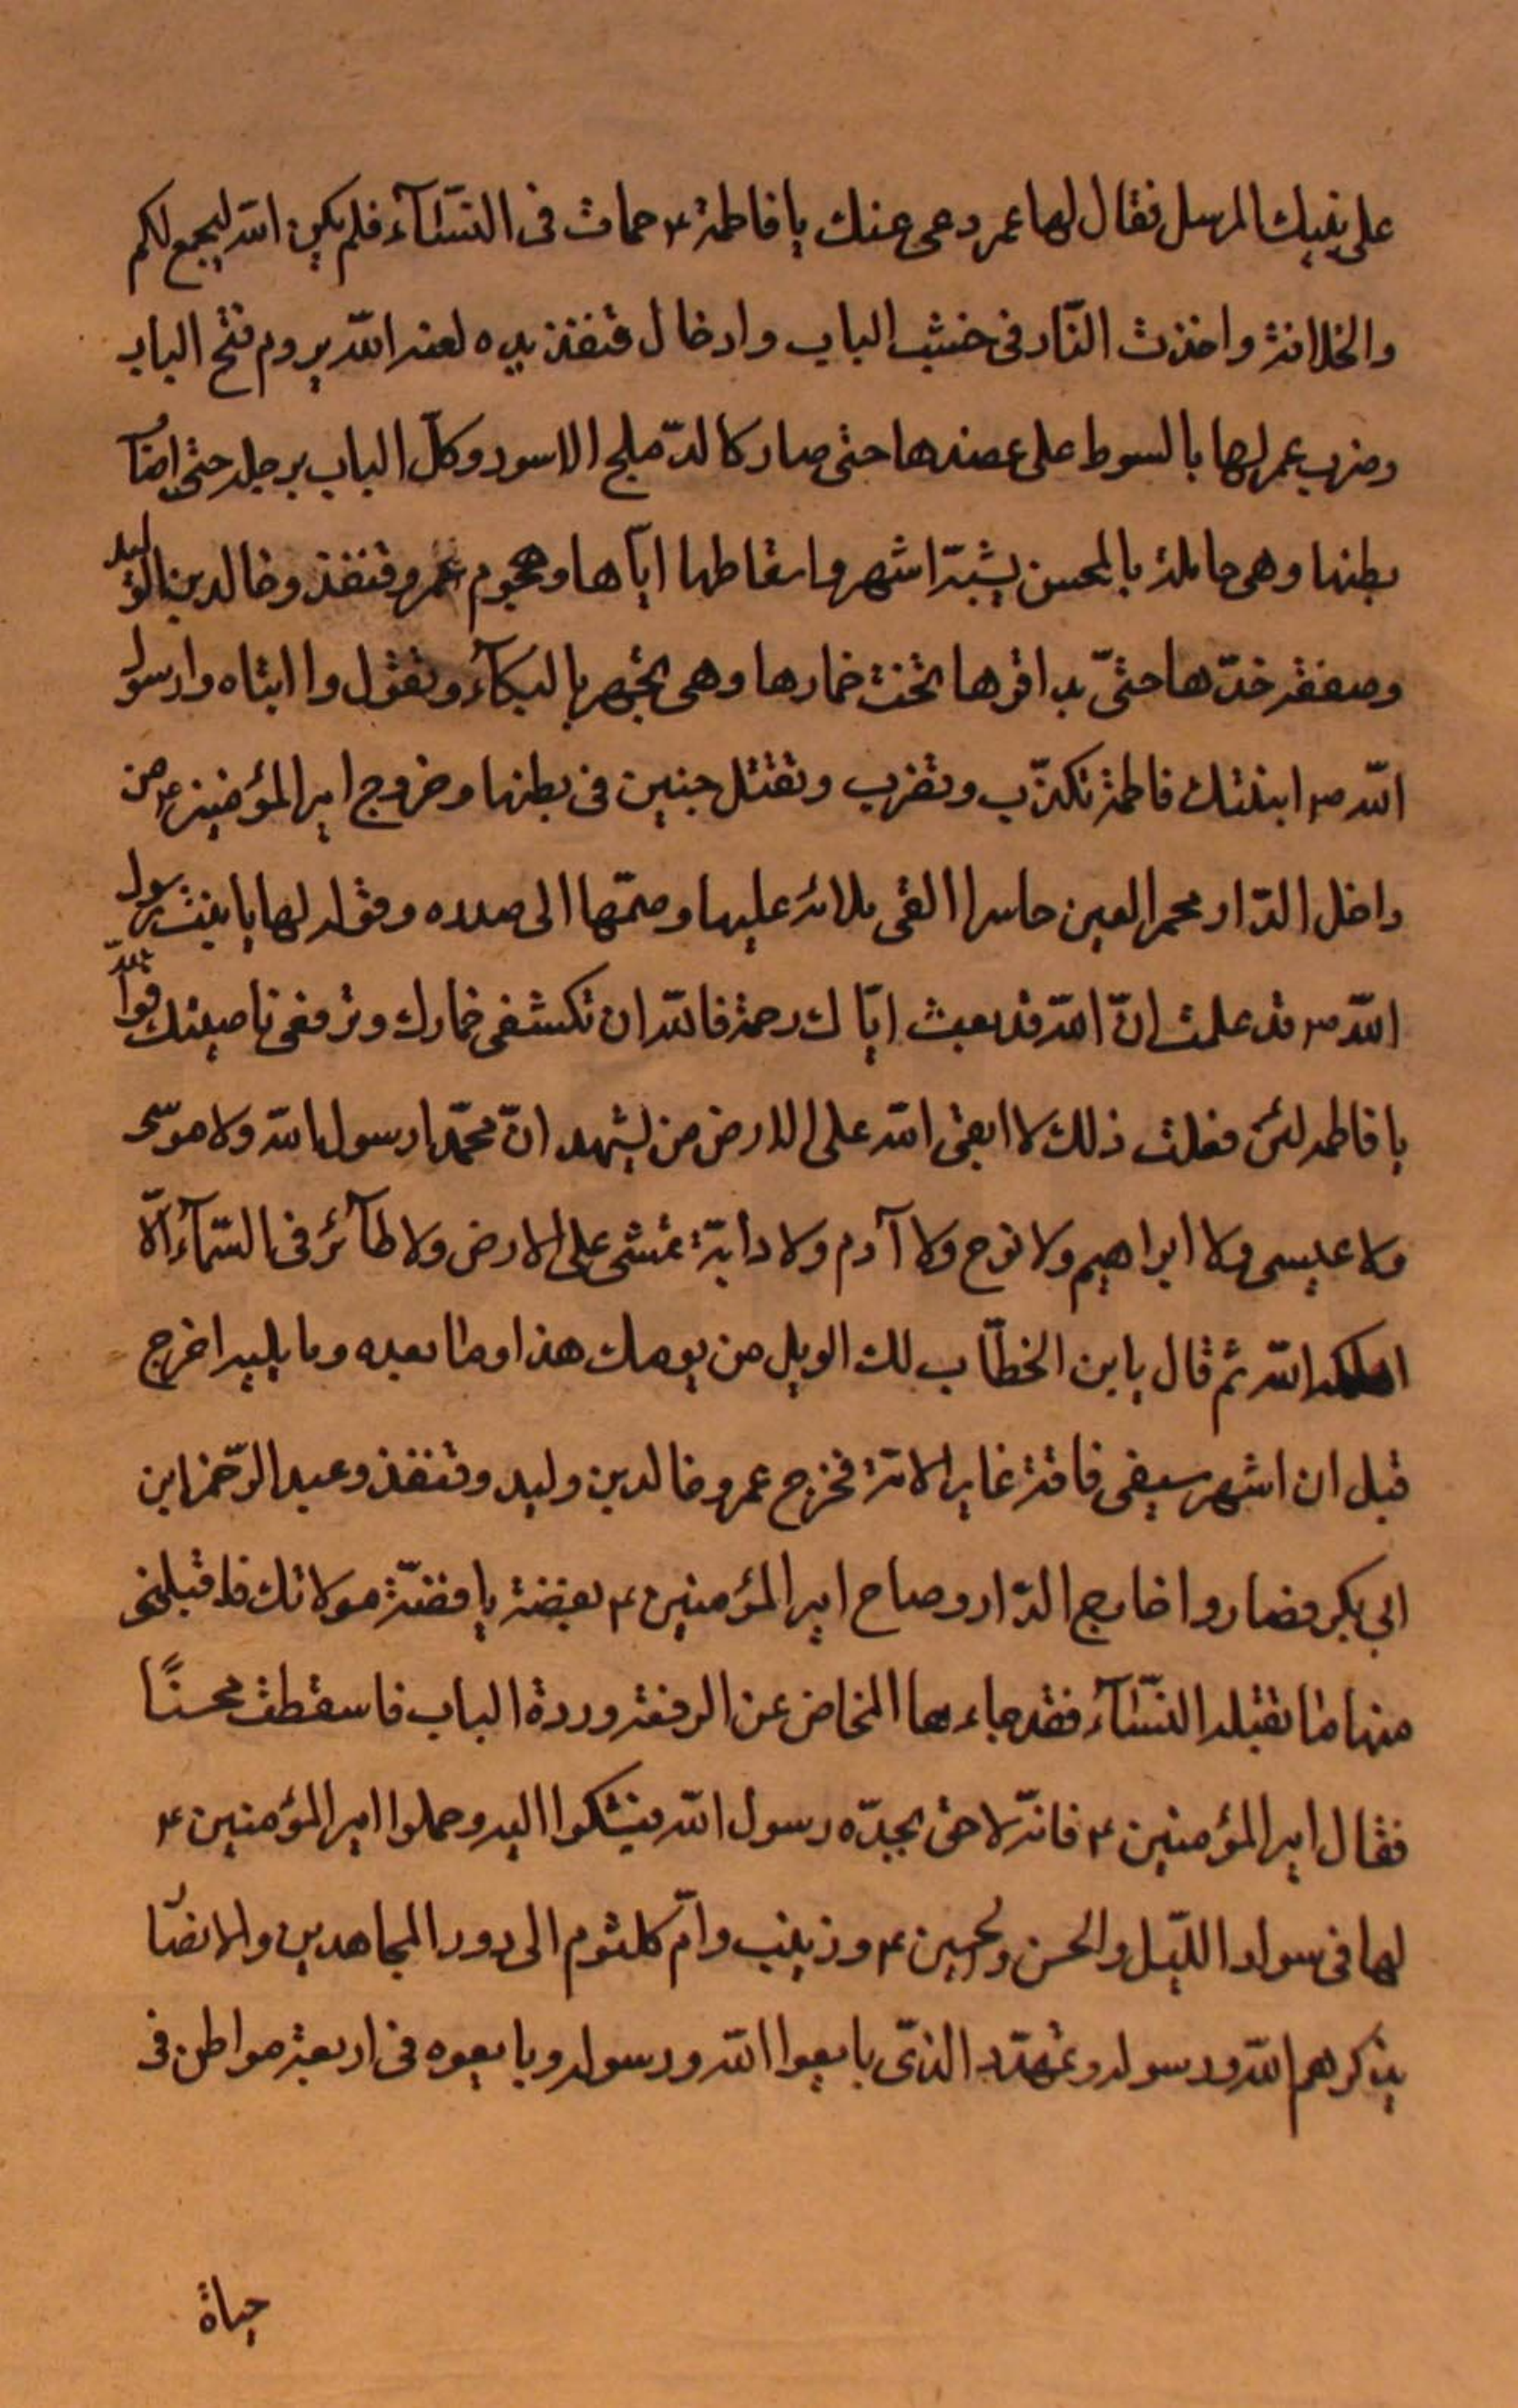 على نبيك المرسل فقال لها عمر دعى عنك يا فاطمة ع حماقت فى النسّآء فلم يكن اللّه ليجمع لكم
والخلافة واخذت النّار فى خشب الباب وادخال قنفذ يده لعنه اللّه يروم فتح الباب
وضرب عمر لها بالسوط على عضدها حتى صار كالدّملج الاسود وكل الباب برجله حتى اصاب
بطنها وهى حاملة بالمحسن لستة اشهر واسقاطها ايّاها وهجوم عمر وقنفذ وخالد بن الوليد
وصفقه خدّها حتىّ بدا قرها تحت خمارها وهى تجهر بالبكآء وتقول وا ابتاه وا رسول
اللّه ص ابنتك فاطمة تكذّب وتضرب وتقتل جنين فى بطنها وخروج امير المؤمنين ع من
داخل الدّار محمر العين حاسرا القى ملائه عليها وضمّها الى صدره وقوله لها يا بنت رسول
اللّه ص قد علمت انّ اللّه قد بعث اباك رحمة فاللّه ان تكشفى خمارك وترفعى ناصيتك فو اللّه
يا فاطمه لئن فعلت ذلك لا ابقى اللّه على الارض من يشهد انّ محمّدا رسول اللّه ولا موسى
ولا عيسى ولا ابراهيم ولا نوح ولا آدم ولا دابّة تمشى على الارض ولا طآئر فى السّمآء الّا
اهلكه اللّه ثم قال يا بن الخطّاب لك الويل من يومك هذا وما بعده وما يليه اخرج
قبل ان اشهر سيفى فافنى غابر الامة فخرج عمر وخالد بن وليد وقنفذ وعبد الرّحمن ابن
ابى بكر فصاروا خارج الدّار وصاح امير المؤمنين ع بفضة يا فضّة مولاتك فاقبلى
منها ما تقبله النسّآء فقد جاءها المخاض عن الرفقة وردة الباب فاسقطت محسنًا
فقال امير المؤمنين ع فانّه لاحق بجدّه رسول اللّه فيشكوا اليه وحملوا امير المؤمنين ع
لها فى سواد اللّيل والحسن والحسين ع وزينب وامّ كلثوم الى دور المجاهدين والانصار
يذكرهم اللّه ورسوله وعهده الذّى بايعوا اللّه ورسوله وبايعوه فى اربعة مواطن فى
حياة